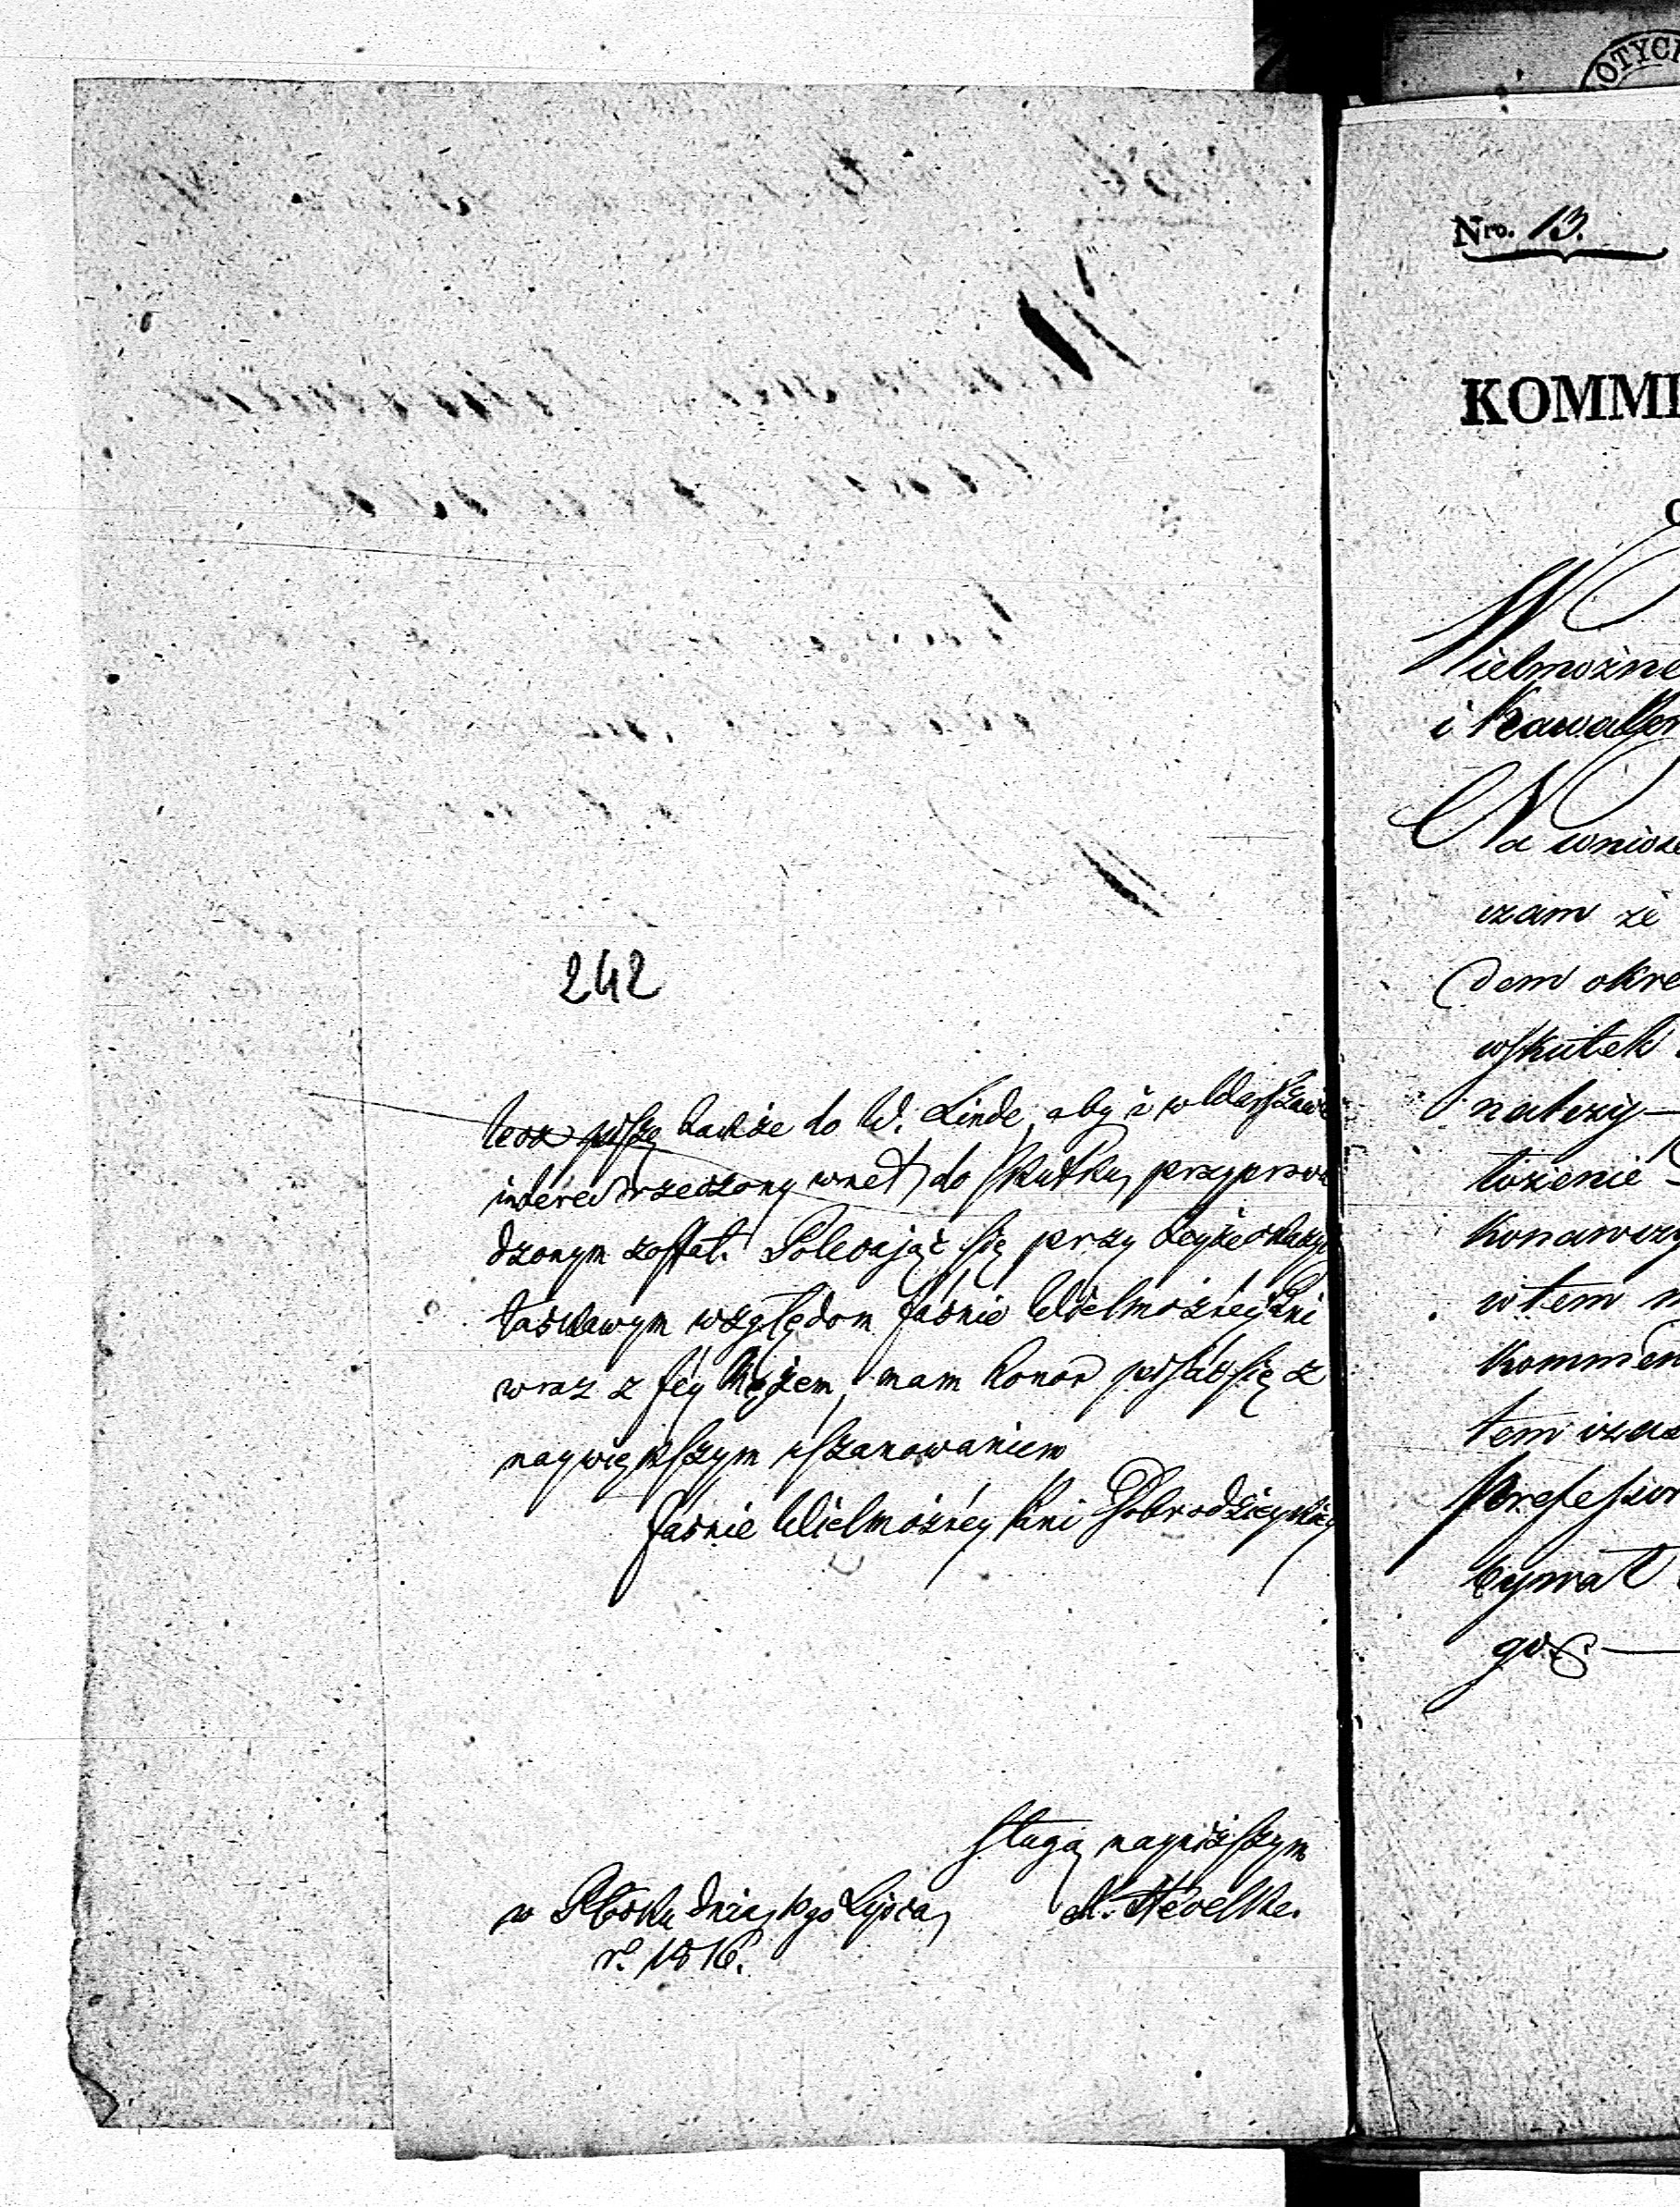 242
lecz piszę także do W. Linde, aby i w Warszawie
interes rzeczony wnet do skutku przyprowa
dzonym został. Polecając się przy teyże okazyi
łaskawym względom Jaśnie Wielmożney Pni
wraz z Jey Mężem, mam honor pisać się z
naywiększym uszanowaniem
Jaśnie Wielmożney Pni Dobrodzieyki
sługą nayniższym
w Płocku dnia 10go Lipca
r. 1816.
Nro. 13.
KOMMI
Wielmożne
i Kawaler
Na wniose
czam że
dem okre
wskutek
natezy
tożenie
konawczy
w tem
kommen
tem czas
Professor
bywat
go
OTYCH